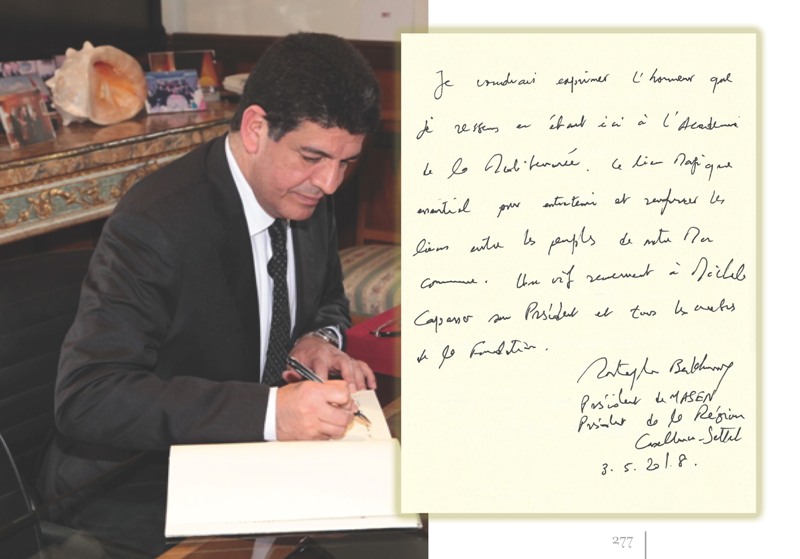 Je voudrais exprimer l'honneur que
je ressens en étant ici à l'Académie
de la Méditerranée. Ce lieu Magique
essentiel pour entretenir et renforcer les
liens entre les peuples de notre Mer
commune. Un vif remerciement à Michele
Capasso son Président et tous les membres
de la Fondation.
Mostapha Bakkoury
Président de MASEN
Président de la Région
Casablanca-Settat
3.5.2018.
277